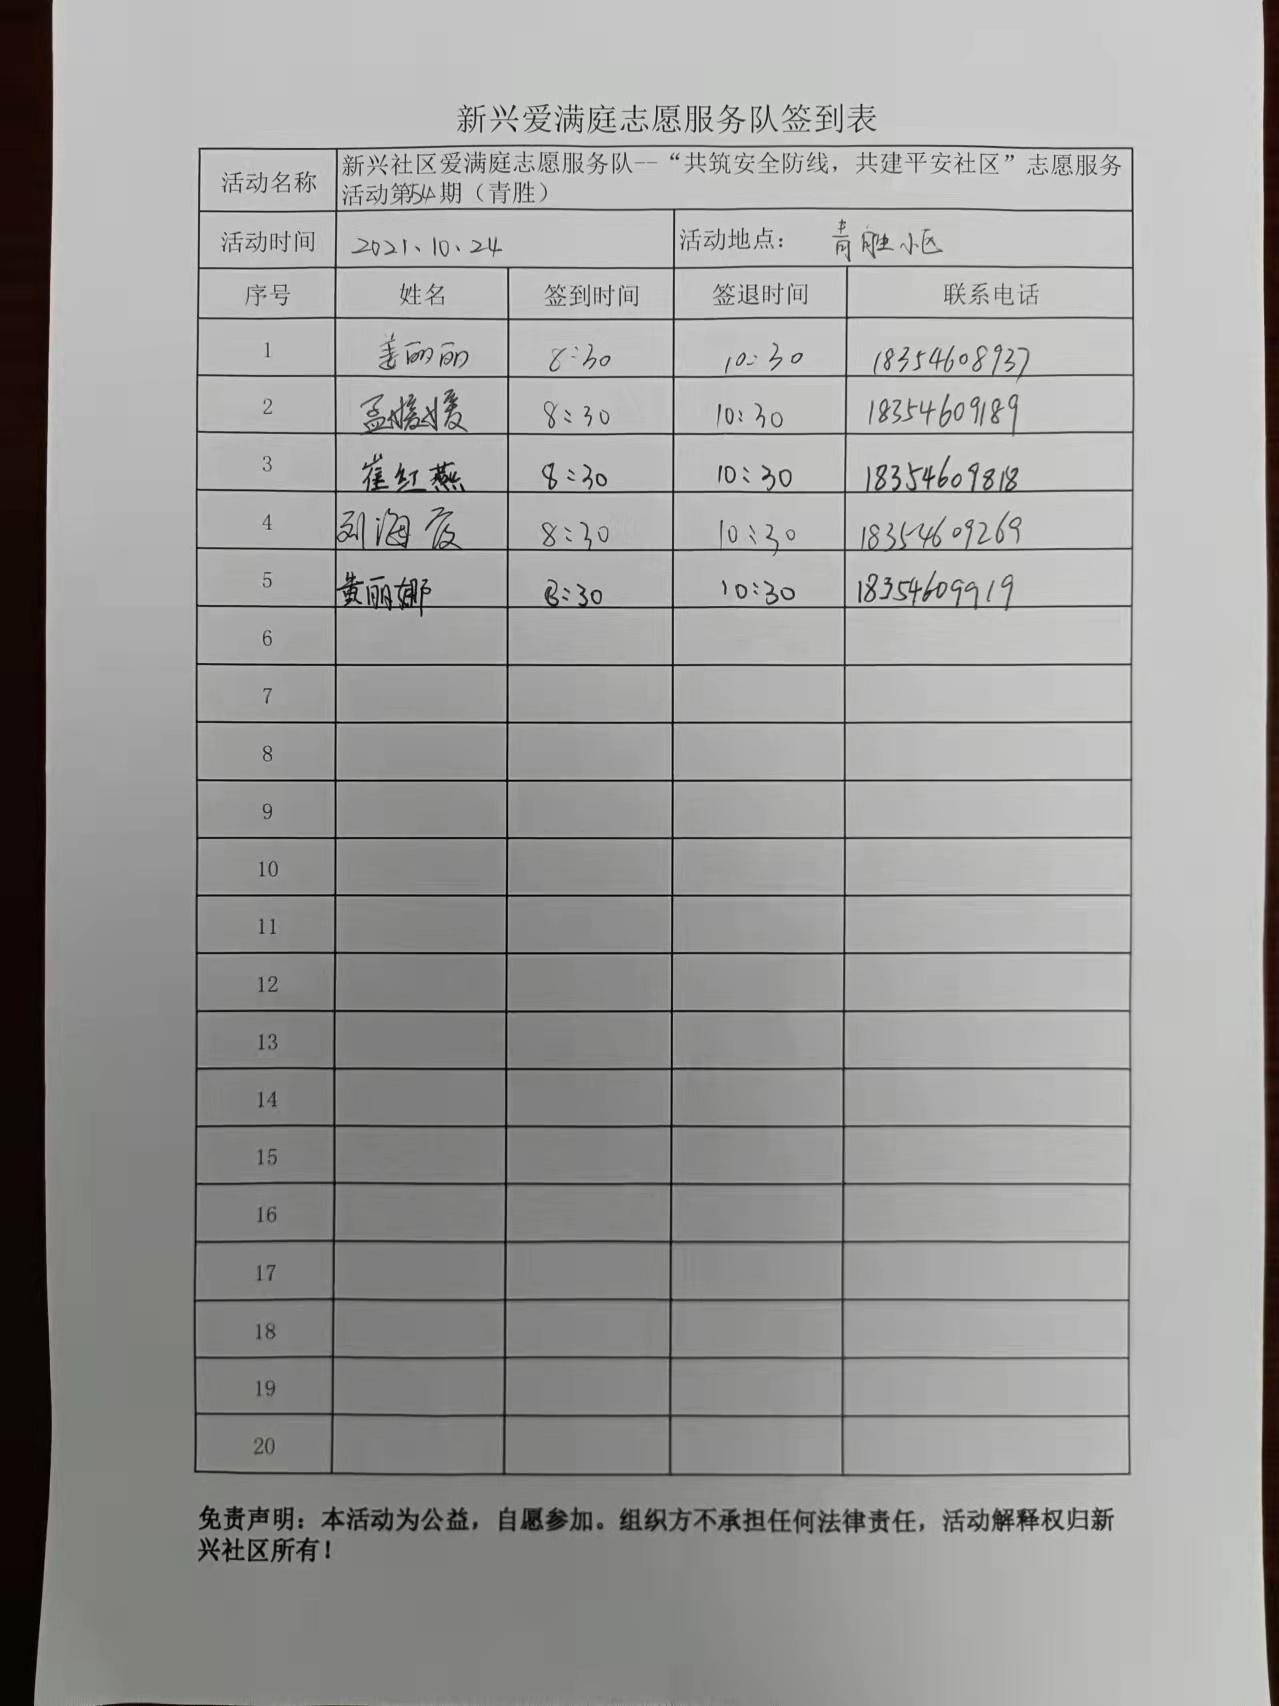 新兴爱满庭志愿服务队签到表
活动名称 新兴社区爱满庭志愿服务队--“共筑安全防线，共建平安社区”志愿服务
活动第54期（青胜）
活动时间 2021、10、24 活动地点： 青胜小区
序号 姓名 签到时间 签退时间 联系电话
1 姜丽丽 8:30 10:30 18354608937
2 孟媛媛 8:30 10:30 18354609189
3 崔红燕 8:30 10:30 18354609818
4 刘海霞 8:30 10:30 18354609269
5 黄丽娜 8:30 10:30 18354609919
6
7
8
9
10
11
12
13
14
15
16
17
18
19
20
免责声明：本活动为公益，自愿参加。组织方不承担任何法律责任，活动解释权归新
兴社区所有！